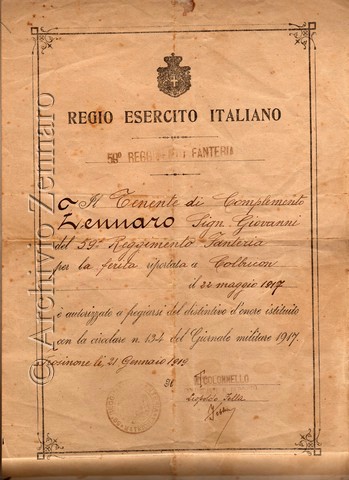 REGIO ESERCITO ITALIANO
59º REGGIMENTO FANTERIA
Il Tenente di Complemento
Zennaro Sign. Giovanni
del 59º Reggimento Fanteria
per la ferita riportata a Colbricon
il 22 maggio 1917
è autorizzato a fregiarsi del distintivo d'onore istituito
con la circolare n. 134 del Giornale militare 1917.
Frosinone li, 21 Gennaio 1919
IL COLONNELLO
© Archivio Zennaro